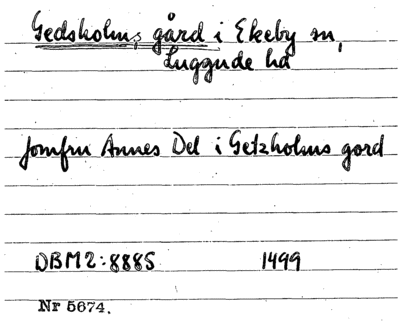 Gedsholms gård i Ekeby sn,
Luggude hd
Jomfru Annes Del i Getzholms gord
DBM2:8885 1499
Nr 5674.